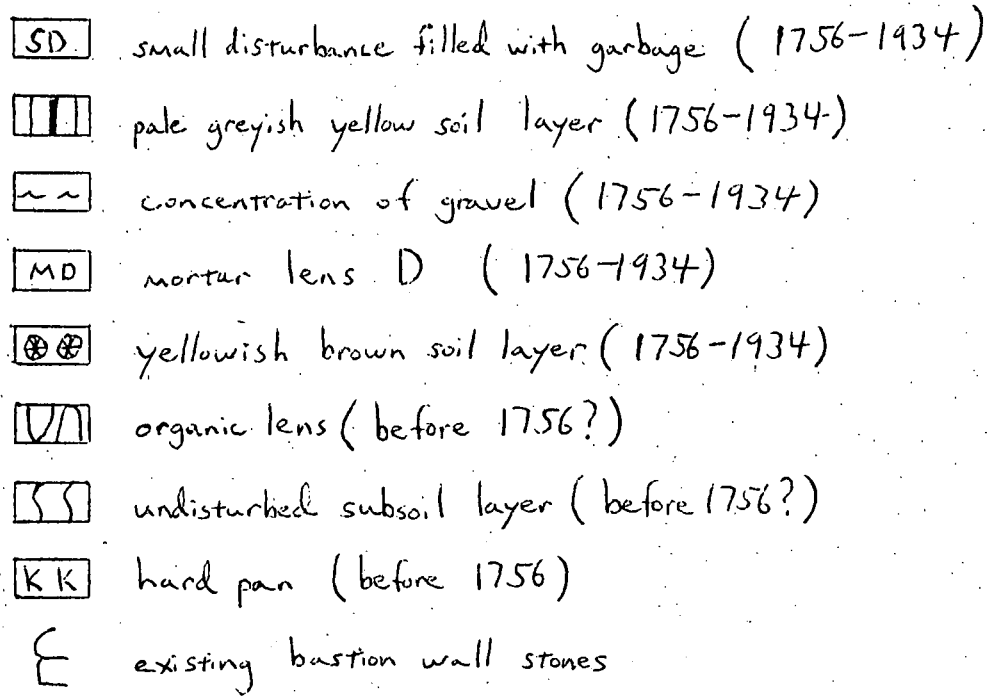 SD small disturbance filled with garbage (1756-1934)
pale greyish yellow soil layer (1756-1934)
~ ~ concentration of gravel (1756-1934)
MD mortar lens D (1756-1934)
yellowish brown soil layer (1756-1934)
organic lens (before 1756?)
undisturbed subsoil layer (before 1756?)
K K hard pan (before 1756)
existing bastion wall stones